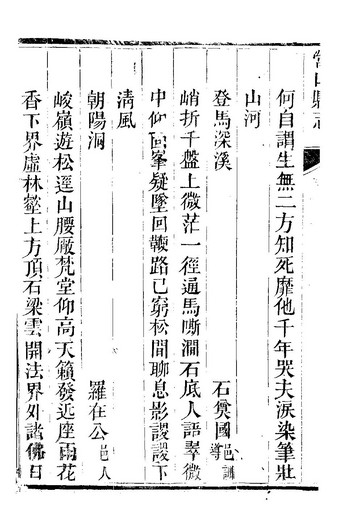 何自謂生無二方知死靡他千年哭夫淚染筆壯
山河
登馬深溪　石奠國邑訓導
峭折千盤上微茫一徑通馬嘶澗石底人語翠微
中仰面峯疑墜回鞭路已窮松間聊息影謖謖下
清風
朝陽洞　羅在公邑人
峻嶺遊松逕山腰嚴梵堂仰高天籟發近座雨花
香下界虛林壑上方頂石梁雲開法界外諸佛日